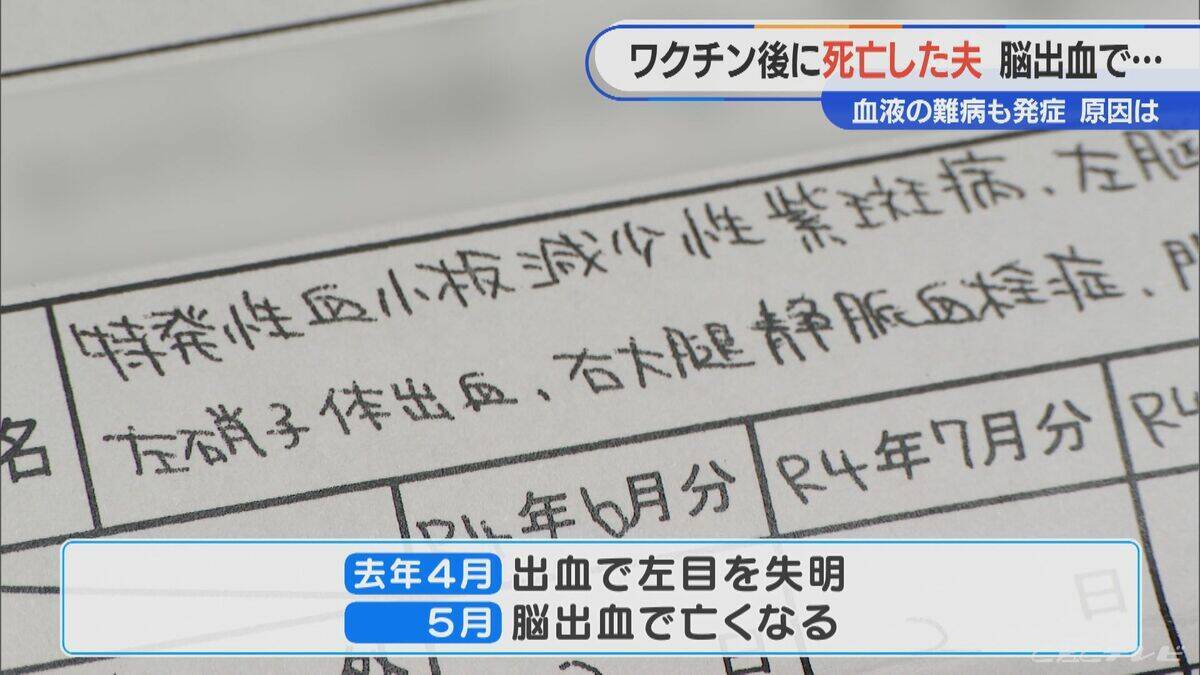 ワクチン後に死亡した夫 脳出血で…
血液の難病も発症 原因は
特発性血小板減少性紫斑病、左脳
左硝子体出血、右大腿静脈血栓症、
名
R4年6月分
R4年7月分
R4
去年4月 出血で左目を失明
5月 脳出血で亡くなる
日
日